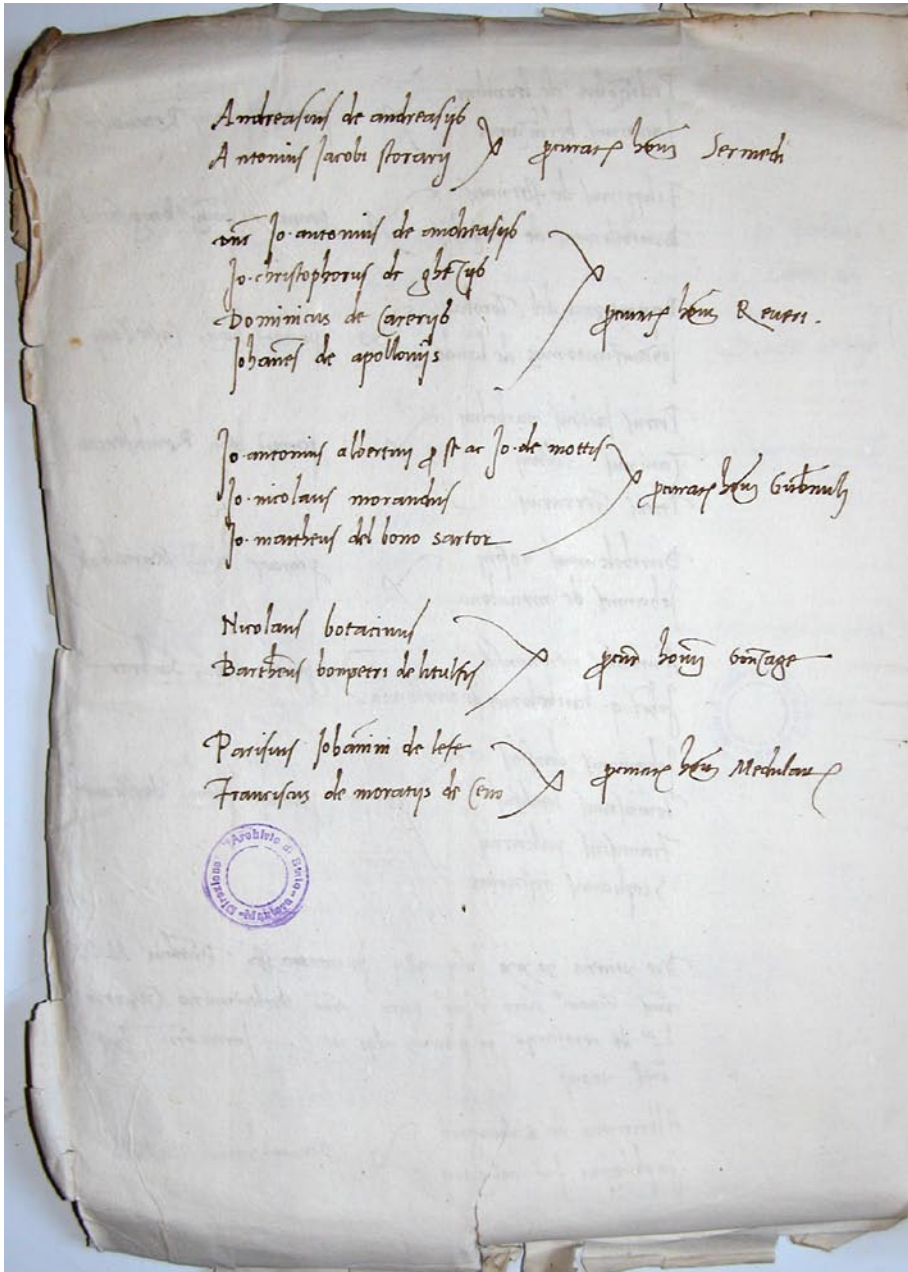 Andreasius de andreasijs
Antonius Jacobi storarij
procurat hom Sermedi
Jo. antonius de andreasijs
Jo. christophorus de
Dominicus de Carerijs
Johanes de apollonijs
procurat hom Reveri.
Jo. antonius albertini p se ac Jo. de mottis
Jo. nicolaus morandus
Jo. mattheus del bono sartor
procurat hom Gubnuli
Nicolaus botacinus
Bartheus bonpetri de
procur homi Gonzage
Parisius Johanini de lese
Franciscus de moratijs de Ceno
procurat hom Medular
Archivio di Stato - Mantova - Direzione